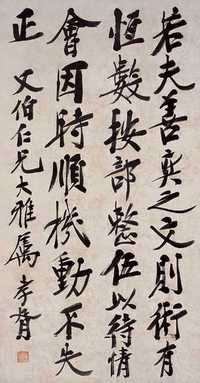 若夫善奕之文則術有
恒數按部整伍以待情
會因時順機動不失
正 又伯仁兄大雅屬 孝胥